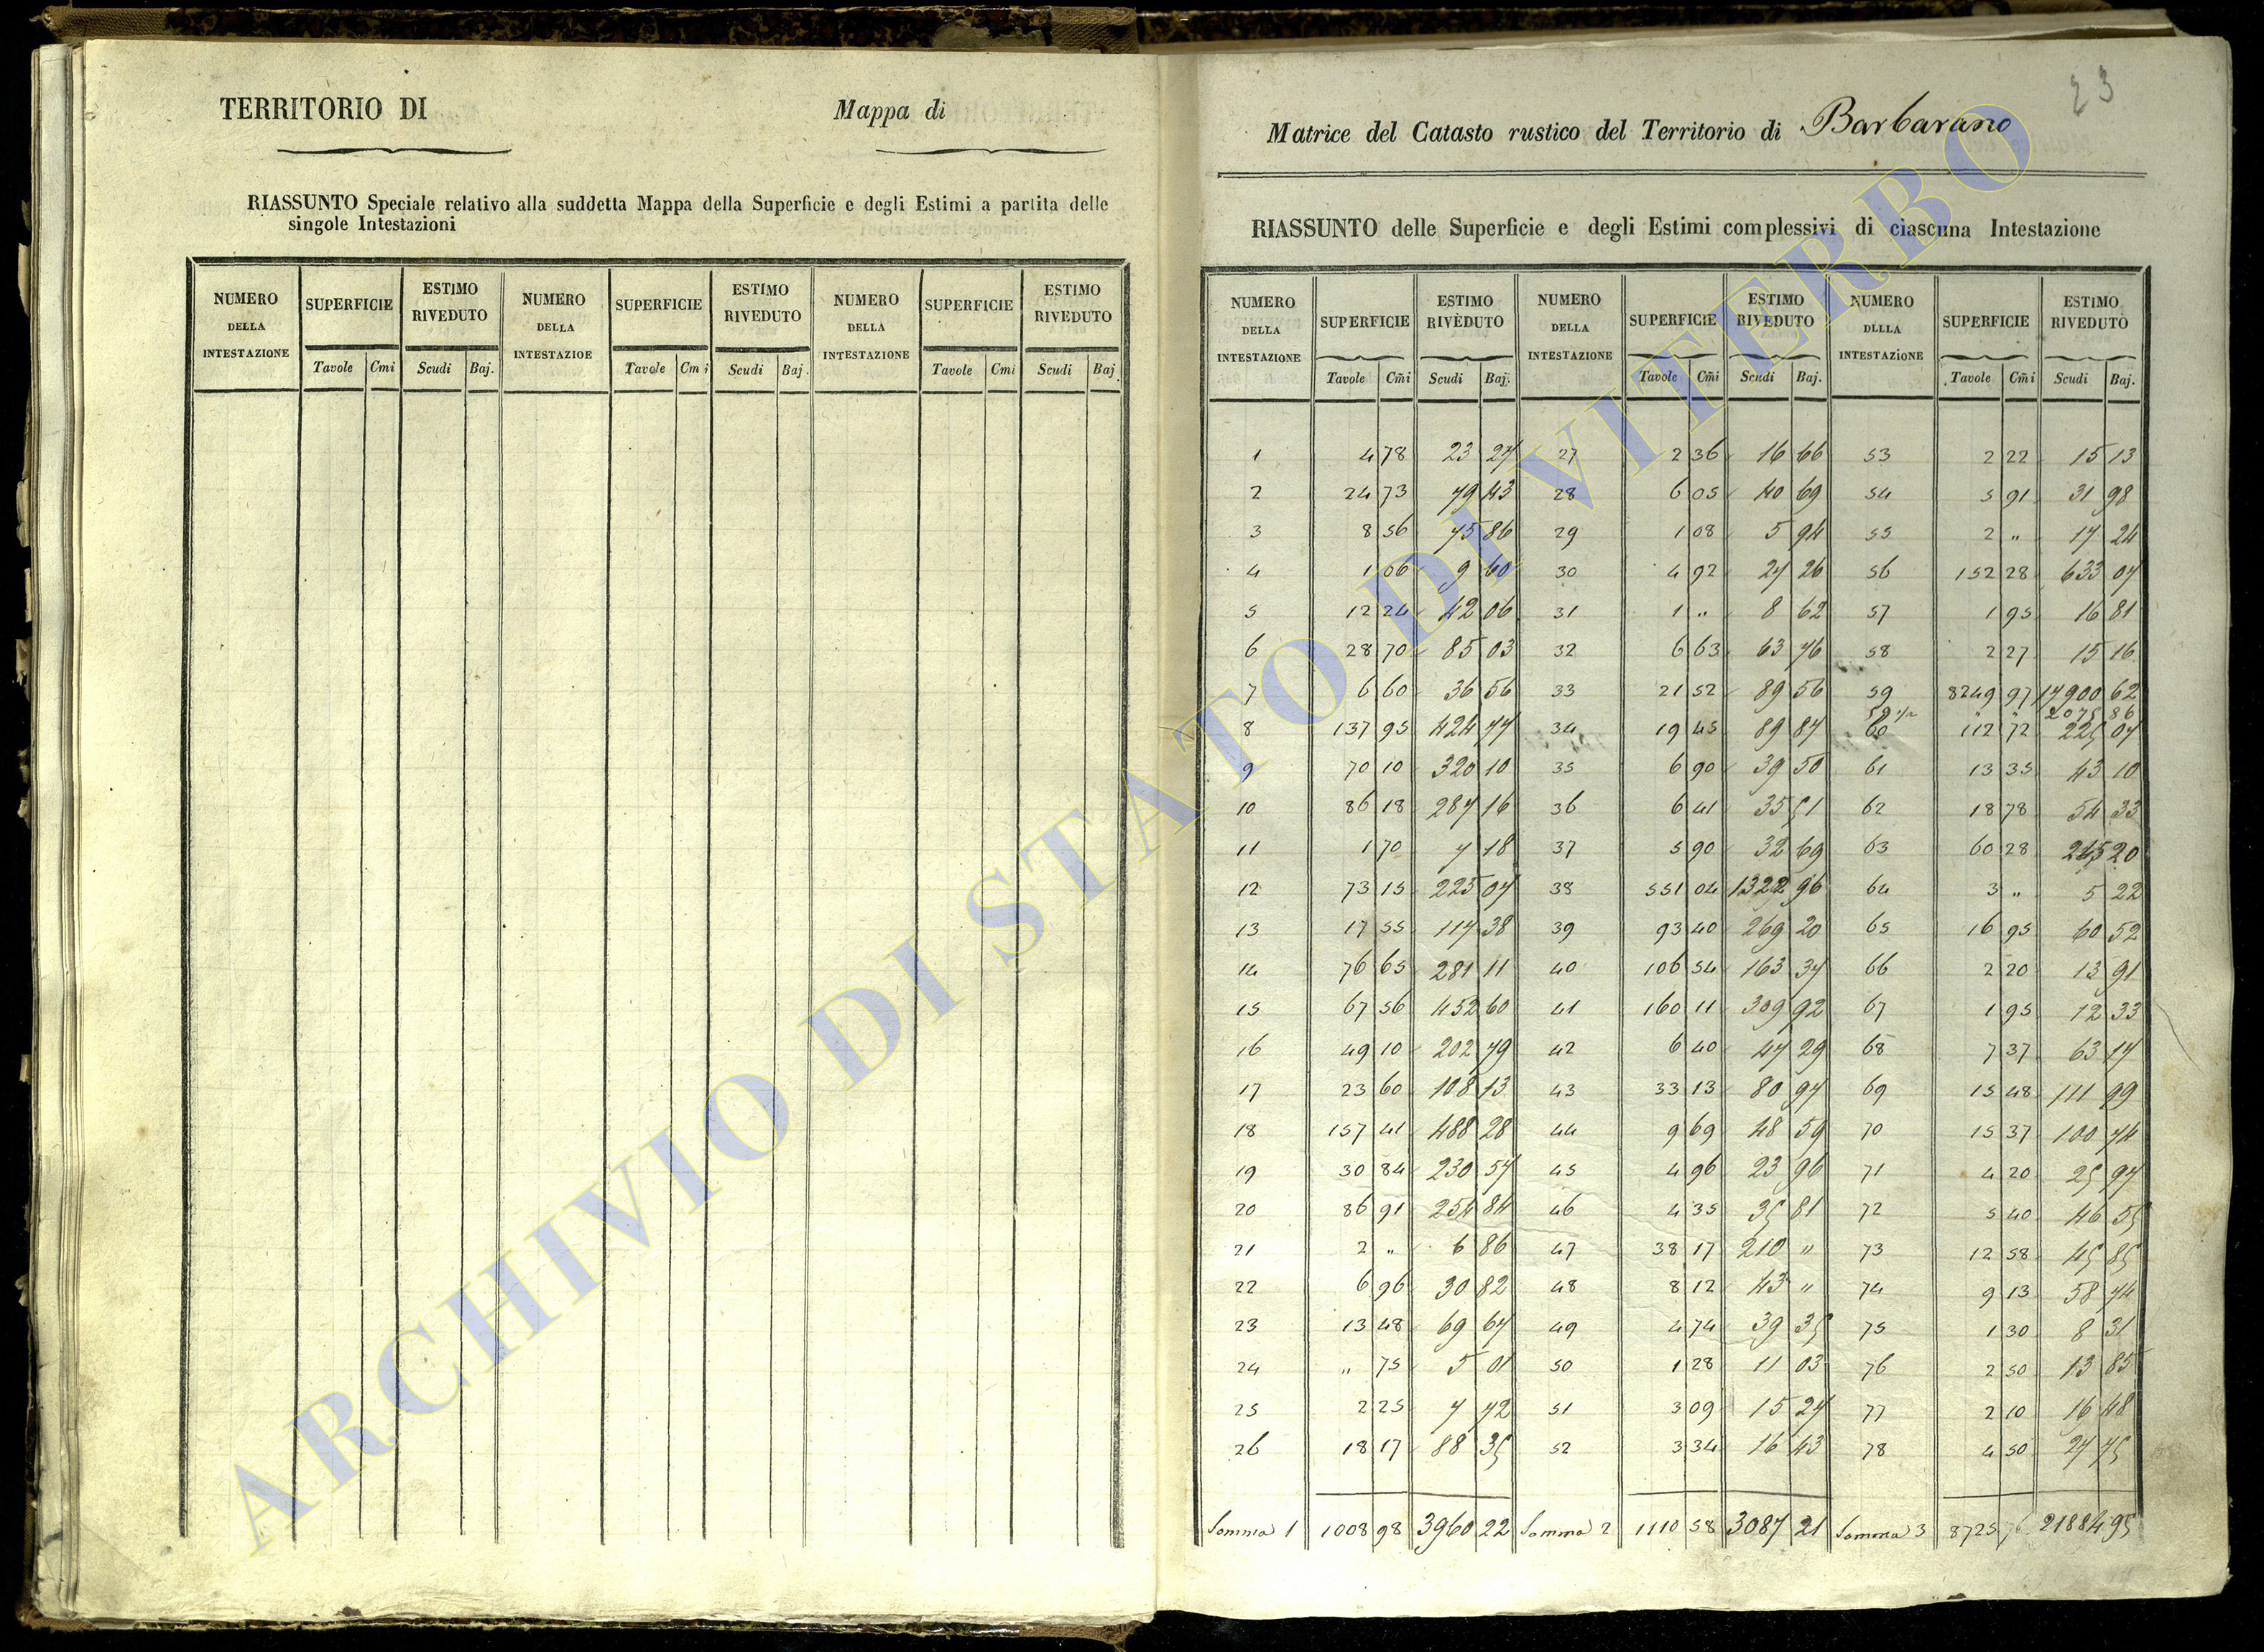 TERRITORIO DI Mappa di
RIASSUNTO Speciale relativo alla suddetta Mappa della Superficie e degli Estimi a partita delle
singole Intestazioni
NUMERO DELLA INTESTAZIONE SUPERFICIE ESTIMO RIVEDUTO NUMERO DELLA INTESTAZIOE SUPERFICIE ESTIMO RIVEDUTO NUMERO DELLA INTESTAZIONE SUPERFICIE ESTIMO RIVEDUTO
Tavole Cmi Scudi Baj. Tavole Cmi Scudi Baj. Tavole Cmi Scudi Baj
23
Matrice del Catasto rustico del Territorio di Barbarano
RIASSUNTO delle Superficie e degli Estimi complessivi di ciascuna Intestazione
NUMERO DELLA INTESTAZIONE SUPERFICIE ESTIMO RIVEDUTO NUMERO DELLA INTESTAZIONE SUPERFICIE ESTIMO RIVEDUTO NUMERO DLLLA INTESTAZIONE SUPERFICIE ESTIMO RIVEDUTO
Tavole Cmi Scudi Baj. Tavole Cmi Scudi Baj. Tavole Cmi Scudi Baj.
1 4 78 23 27 27 2 36 16 66 53 2 22 15 13
2 24 73 79 43 28 6 05 40 69 54 5 91 31 98
3 8 56 75 86 29 1 08 5 94 55 2 " 17 24
4 1 06 9 60 30 4 92 27 26 56 152 28 633 07
5 12 24 42 06 31 1 " 8 62 57 1 95 16 81
6 28 70 85 03 32 6 63 63 76 58 2 27 15 16
7 6 60 36 56 33 21 52 89 56 59 8249 97 17900 62
59 1/2 " " 2075 86
8 137 95 424 77 34 19 45 89 87 60 112 72 225 07
9 70 10 320 10 35 6 90 39 50 61 13 35 43 10
10 86 18 287 16 36 6 41 35 51 62 18 78 54 33
11 1 70 7 18 37 5 90 32 69 63 60 28 245 20
12 73 15 225 07 38 551 04 1322 96 64 3 " 5 22
13 17 55 117 38 39 93 40 269 20 65 16 95 60 52
14 76 65 281 11 40 106 54 163 37 66 2 20 13 91
15 67 56 452 60 41 160 11 309 92 67 1 95 12 33
16 49 10 202 79 42 6 40 47 29 68 7 37 63 17
17 23 60 108 13 43 33 13 80 97 69 15 48 111 99
18 157 41 488 28 44 9 69 48 59 70 15 37 100 74
19 30 84 230 57 45 4 96 23 96 71 4 20 25 97
20 86 91 254 84 46 4 35 35 81 72 5 40 46 55
21 2 " 6 86 47 38 17 210 " 73 12 58 45 85
22 6 96 30 82 48 8 12 43 " 74 9 13 58 74
23 13 48 69 67 49 4 74 39 35 75 1 30 8 31
24 " 75 5 01 50 1 28 11 03 76 2 50 13 85
25 2 25 7 72 51 3 09 15 27 77 2 10 16 48
26 18 17 88 35 52 3 34 16 43 78 4 50 27 75
Somma 1 1008 98 3960 22 Somma 2 1110 58 3087 21 Somma 3 8725 76 21884 95
ARCHIVIO DI STATO DI VITERBO